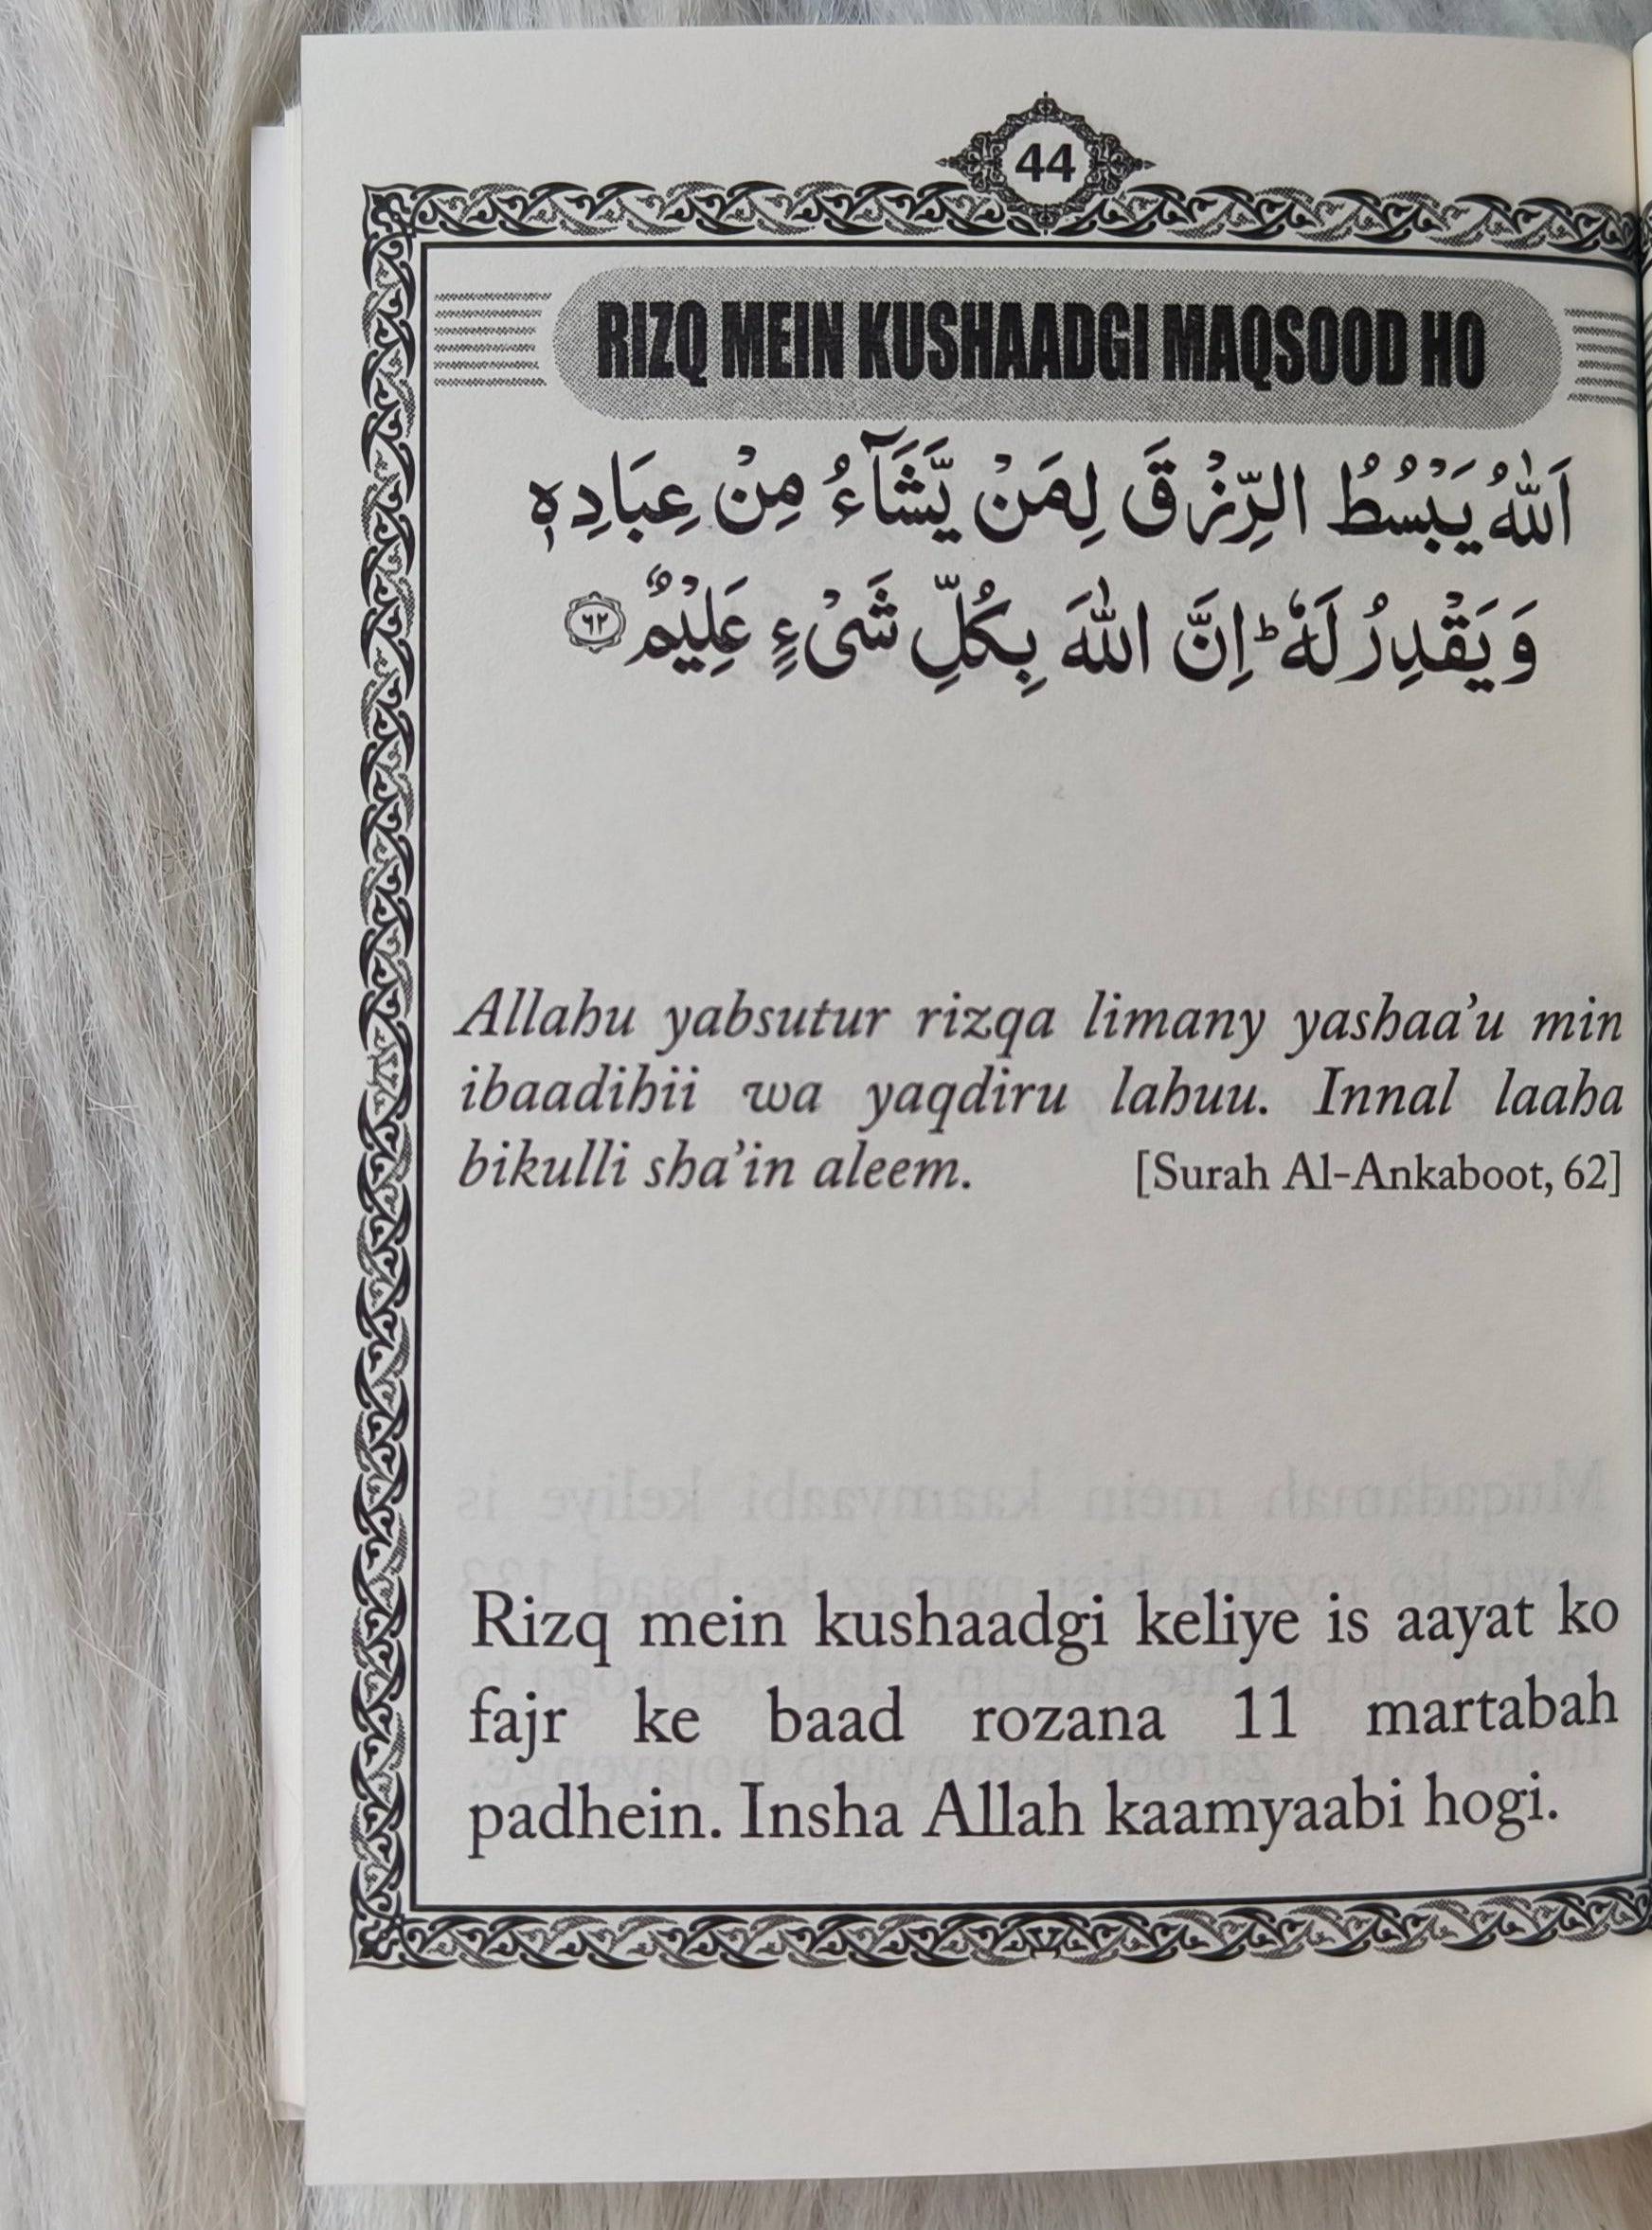 44
RIZQ MEIN KUSHAADGI MAQSOOD HO
اَللّٰهُ يَبْسُطُ الرِّزْقَ لِمَنْ يَّشَآءُ مِنْ عِبَادِهٖ
وَيَقْدِرُ لَهٗ ؕ اِنَّ اللّٰهَ بِكُلِّ شَیْءٍ عَلِيْمٌ ﴿۶۲﴾
Allahu yabsutur rizqa limany yashaa’u min
ibaadihii wa yaqdiru lahuu. Innal laaha
bikulli sha’in aleem. [Surah Al-Ankaboot, 62]
Rizq mein kushaadgi keliye is aayat ko
fajr ke baad rozana 11 martabah
padhein. Insha Allah kaamyaabi hogi.